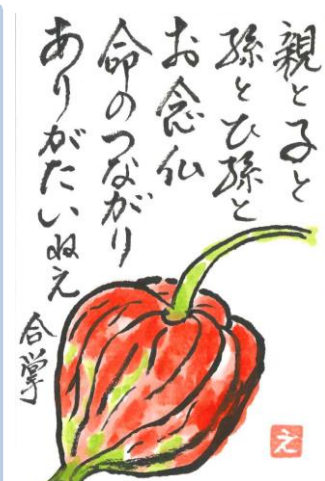 親と子と
孫とひ孫と
お念仏
命のつながり
ありがたいねえ
合掌
え